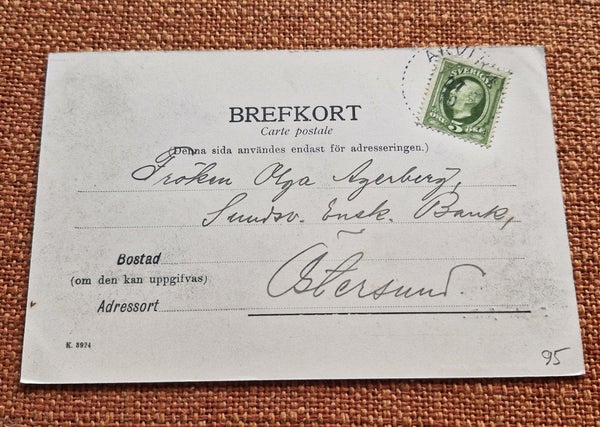 ARVIKA
SVERIGE
5 ÖRE
BREFKORT
Carte postale
(Denna sida användes endast för adresseringen.)
Fröken Olga Agerberg,
Sundsv. Ensk. Bank,
Bostad
(om den kan uppgifvas)
Östersund.
Adressort
K. 3924
95